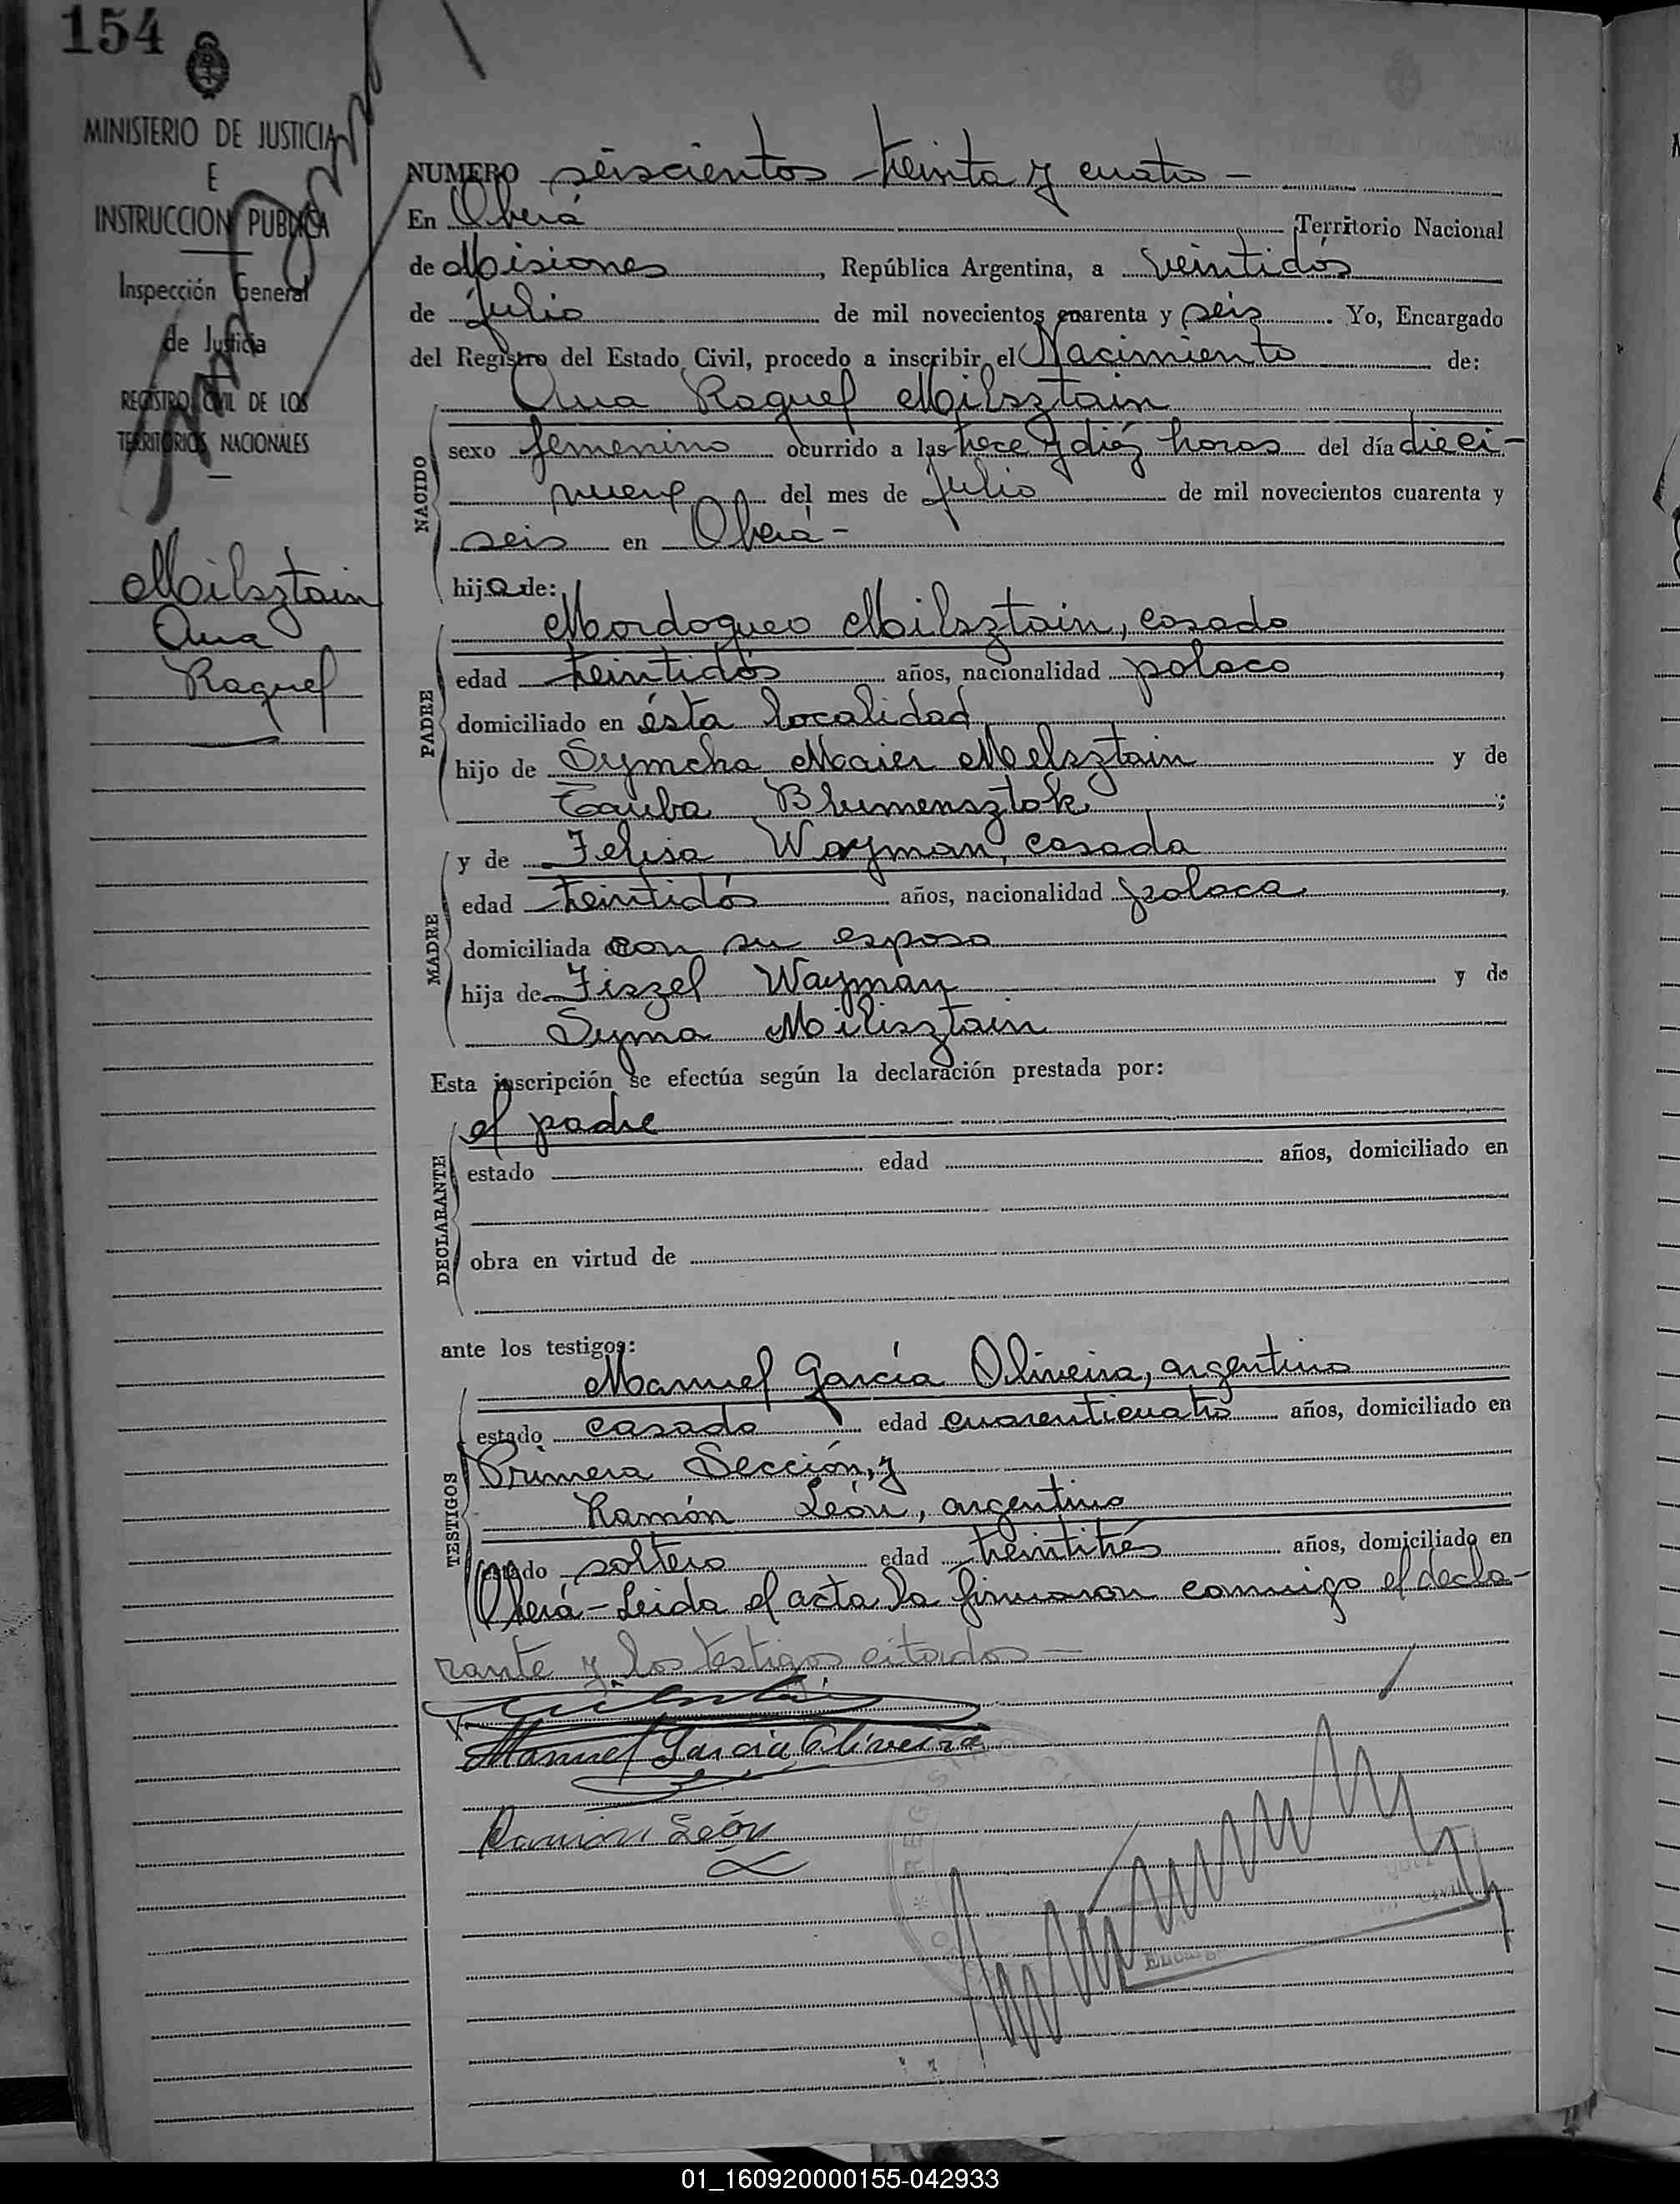 154
MINISTERIO DE JUSTICIA
E
INSTRUCCION PUBLICA
Inspección General
de Justicia
REGISTRO CIVIL DE LOS
TERRITORIOS NACIONALES
Milsztain
Ana
Raquel
NUMERO seiscientos treinta y cuatro -
En Oberá Territorio Nacional
de Misiones, República Argentina, a veintidós
de Julio de mil novecientos cuarenta y seis. Yo, Encargado
del Registro del Estado Civil, procedo a inscribir el Nacimiento de:
Ana Raquel Milsztain
NACIDO
sexo femenino ocurrido a las trece y diéz horas del día dieci-
nueve del mes de Julio de mil novecientos cuarenta y
seis en Oberá -
hija de:
Mordoqueo Milsztain, casado
PADRE
edad treintidós años, nacionalidad polaco,
domiciliado en ésta localidad,
hijo de Symcha Maier Melsztain y de
Tauba Blumensztok;
MADRE
y de Felisa Wayman, casada
edad treintidós años, nacionalidad polaca,
domiciliada con su esposo
hija de Fiszel Wayman y de
Syma Milisztain
Esta inscripción se efectúa según la declaración prestada por:
el padre
DECLARANTE
estado edad años, domiciliado en
obra en virtud de
ante los testigos:
Manuel García Oliveira, argentino
TESTIGOS
estado casado edad cuarenticuatro años, domiciliado en
Primera Sección, y
Ramón León, argentino
estado soltero edad treintitrés años, domiciliado en
Oberá - Leida el acta la firmaron conmigo el decla-
rante y los testigos citados -
Manuel García Oliveira
Ramón León
01_160920000155-042933